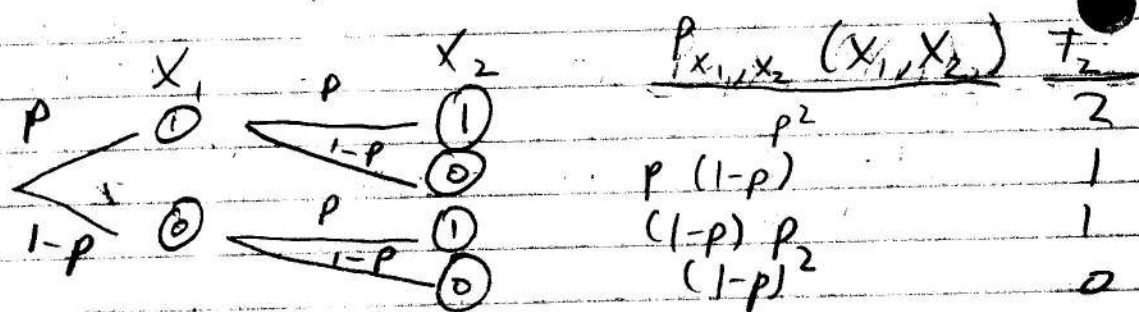 X₁ X₂ P_{X₁,X₂} (X₁, X₂) T₂
P ① P ① p² 2
1-p ⓪ p (1-p) 1
1-p ⓪ P ① (1-p) p 1
1-p ⓪ (1-p)² 0